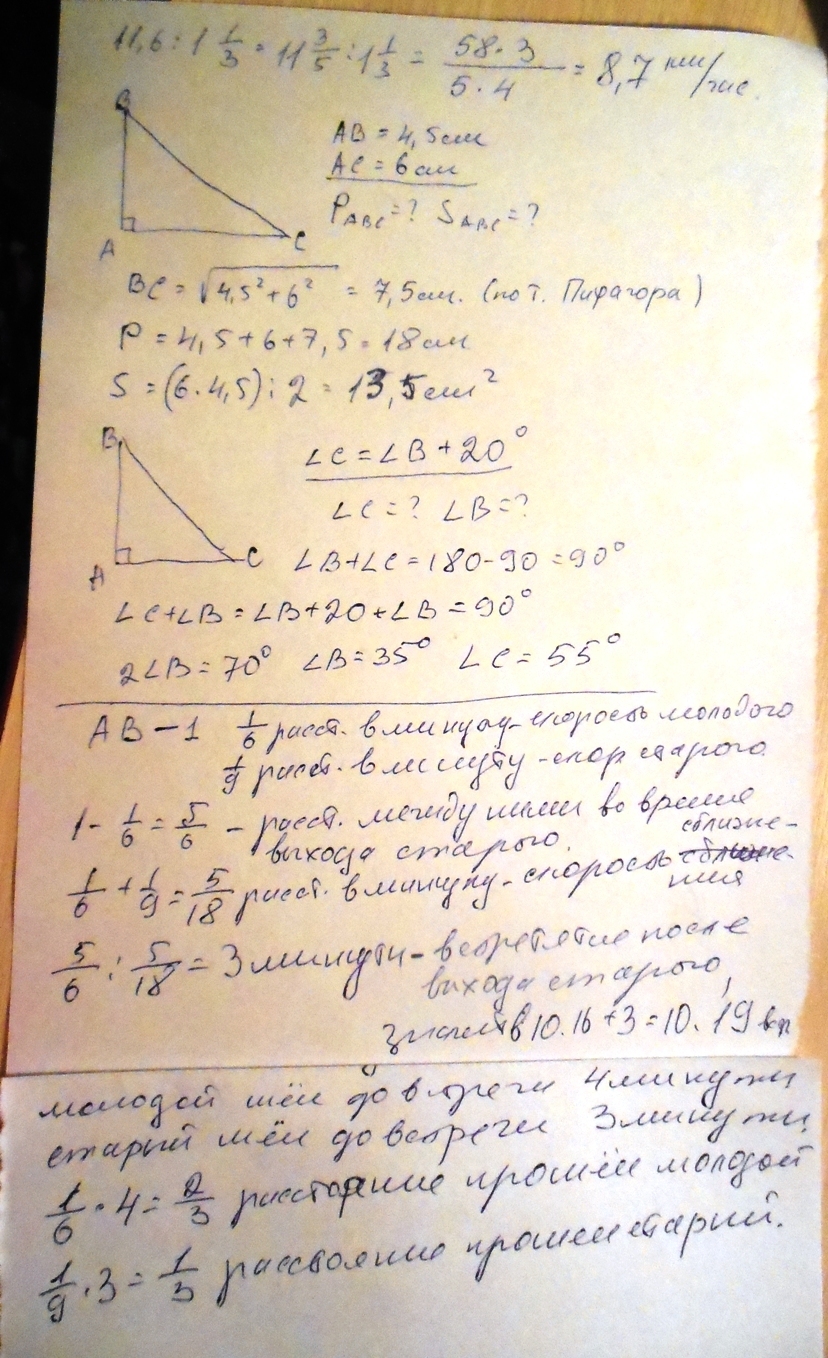 11,6 : 1 1/3 = 11 3/5 : 1 1/3 = 58·3 / 5·4 = 8,7 км/час.
B
AB = 4,5 см
AC = 6 см
P ABC = ? S ABC = ?
A C
BC = √4,5² + 6² = 7,5 см. (по т. Пифагора)
P = 4,5 + 6 + 7,5 = 18 см
S = (6·4,5) : 2 = 13,5 см²
B
∠C = ∠B + 20°
∠C = ? ∠B = ?
A C
∠B + ∠C = 180 - 90 = 90°
∠C + ∠B = ∠B + 20 + ∠B = 90°
2∠B = 70° ∠B = 35° ∠C = 55°
AB — 1 1/6 расст. в минуту - скорость молодого
1/9 расст. в минуту - скор старого
1 - 1/6 = 5/6 - расст. между ними во время
выхода старого.
1/6 + 1/9 = 5/18 расст. в минуту - скорость сближе-
ния
5/6 : 5/18 = 3 минуты - встретятся после
выхода старого,
значит в 10.16 + 3 = 10.19 вр
молодой шёл до встречи 4 минуты
старый шёл до встречи 3 минуты
1/6 · 4 = 2/3 расстояние прошёл молодой
1/9 · 3 = 1/3 расстояние прошел старий.